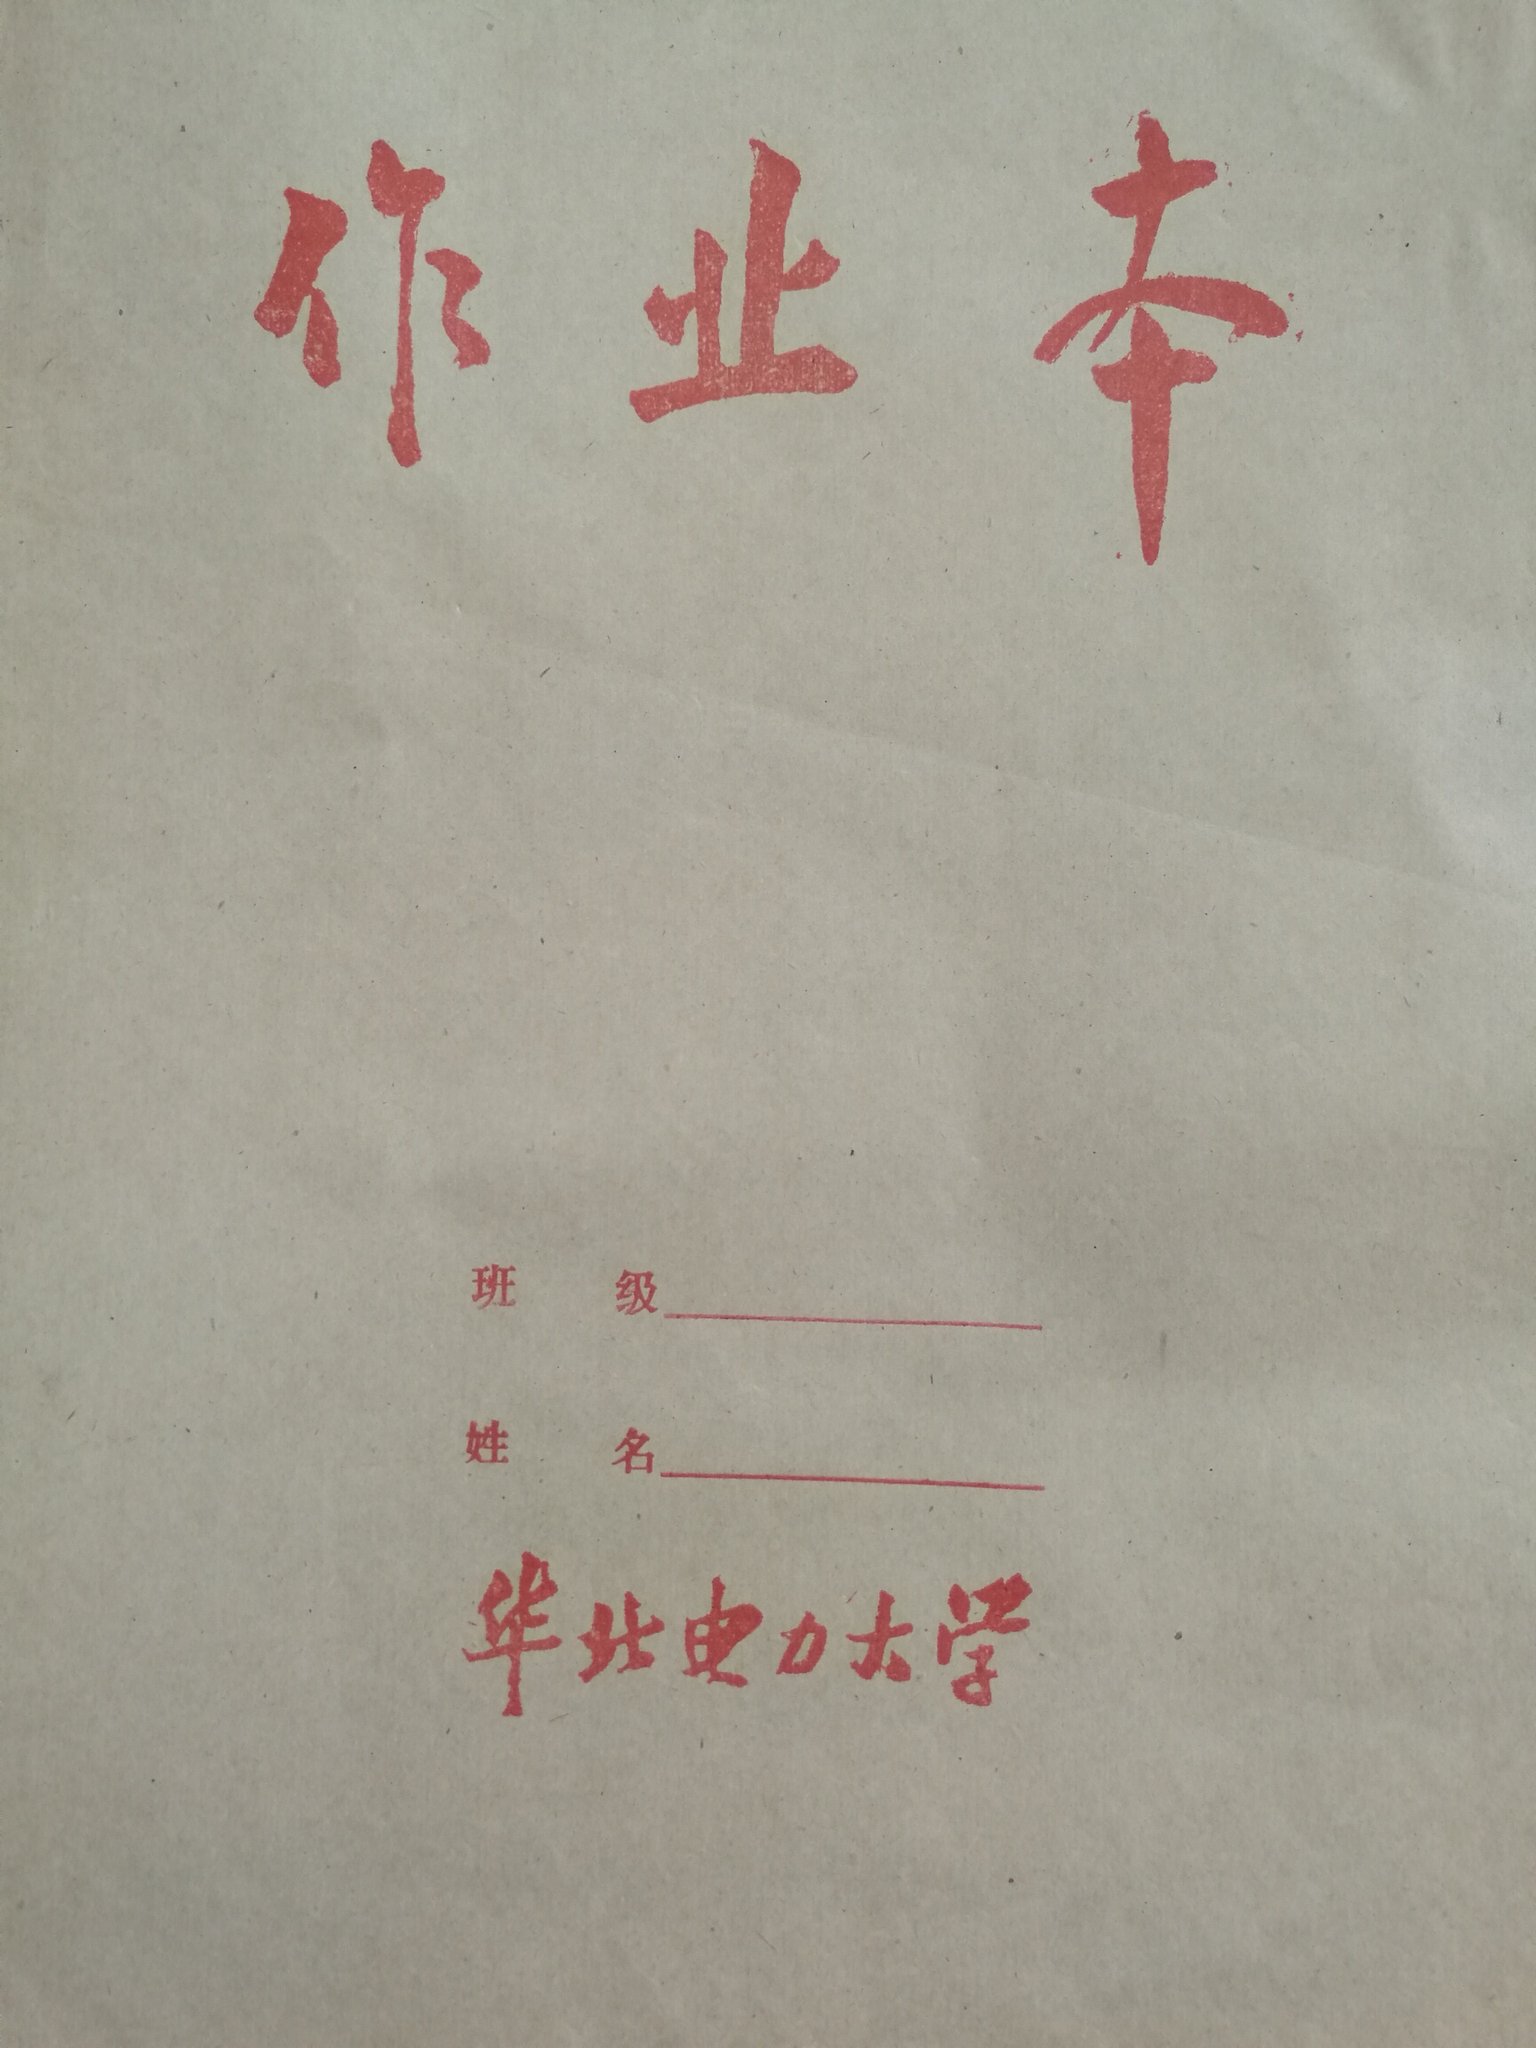 作业本
班 级
姓 名
华北电力大学